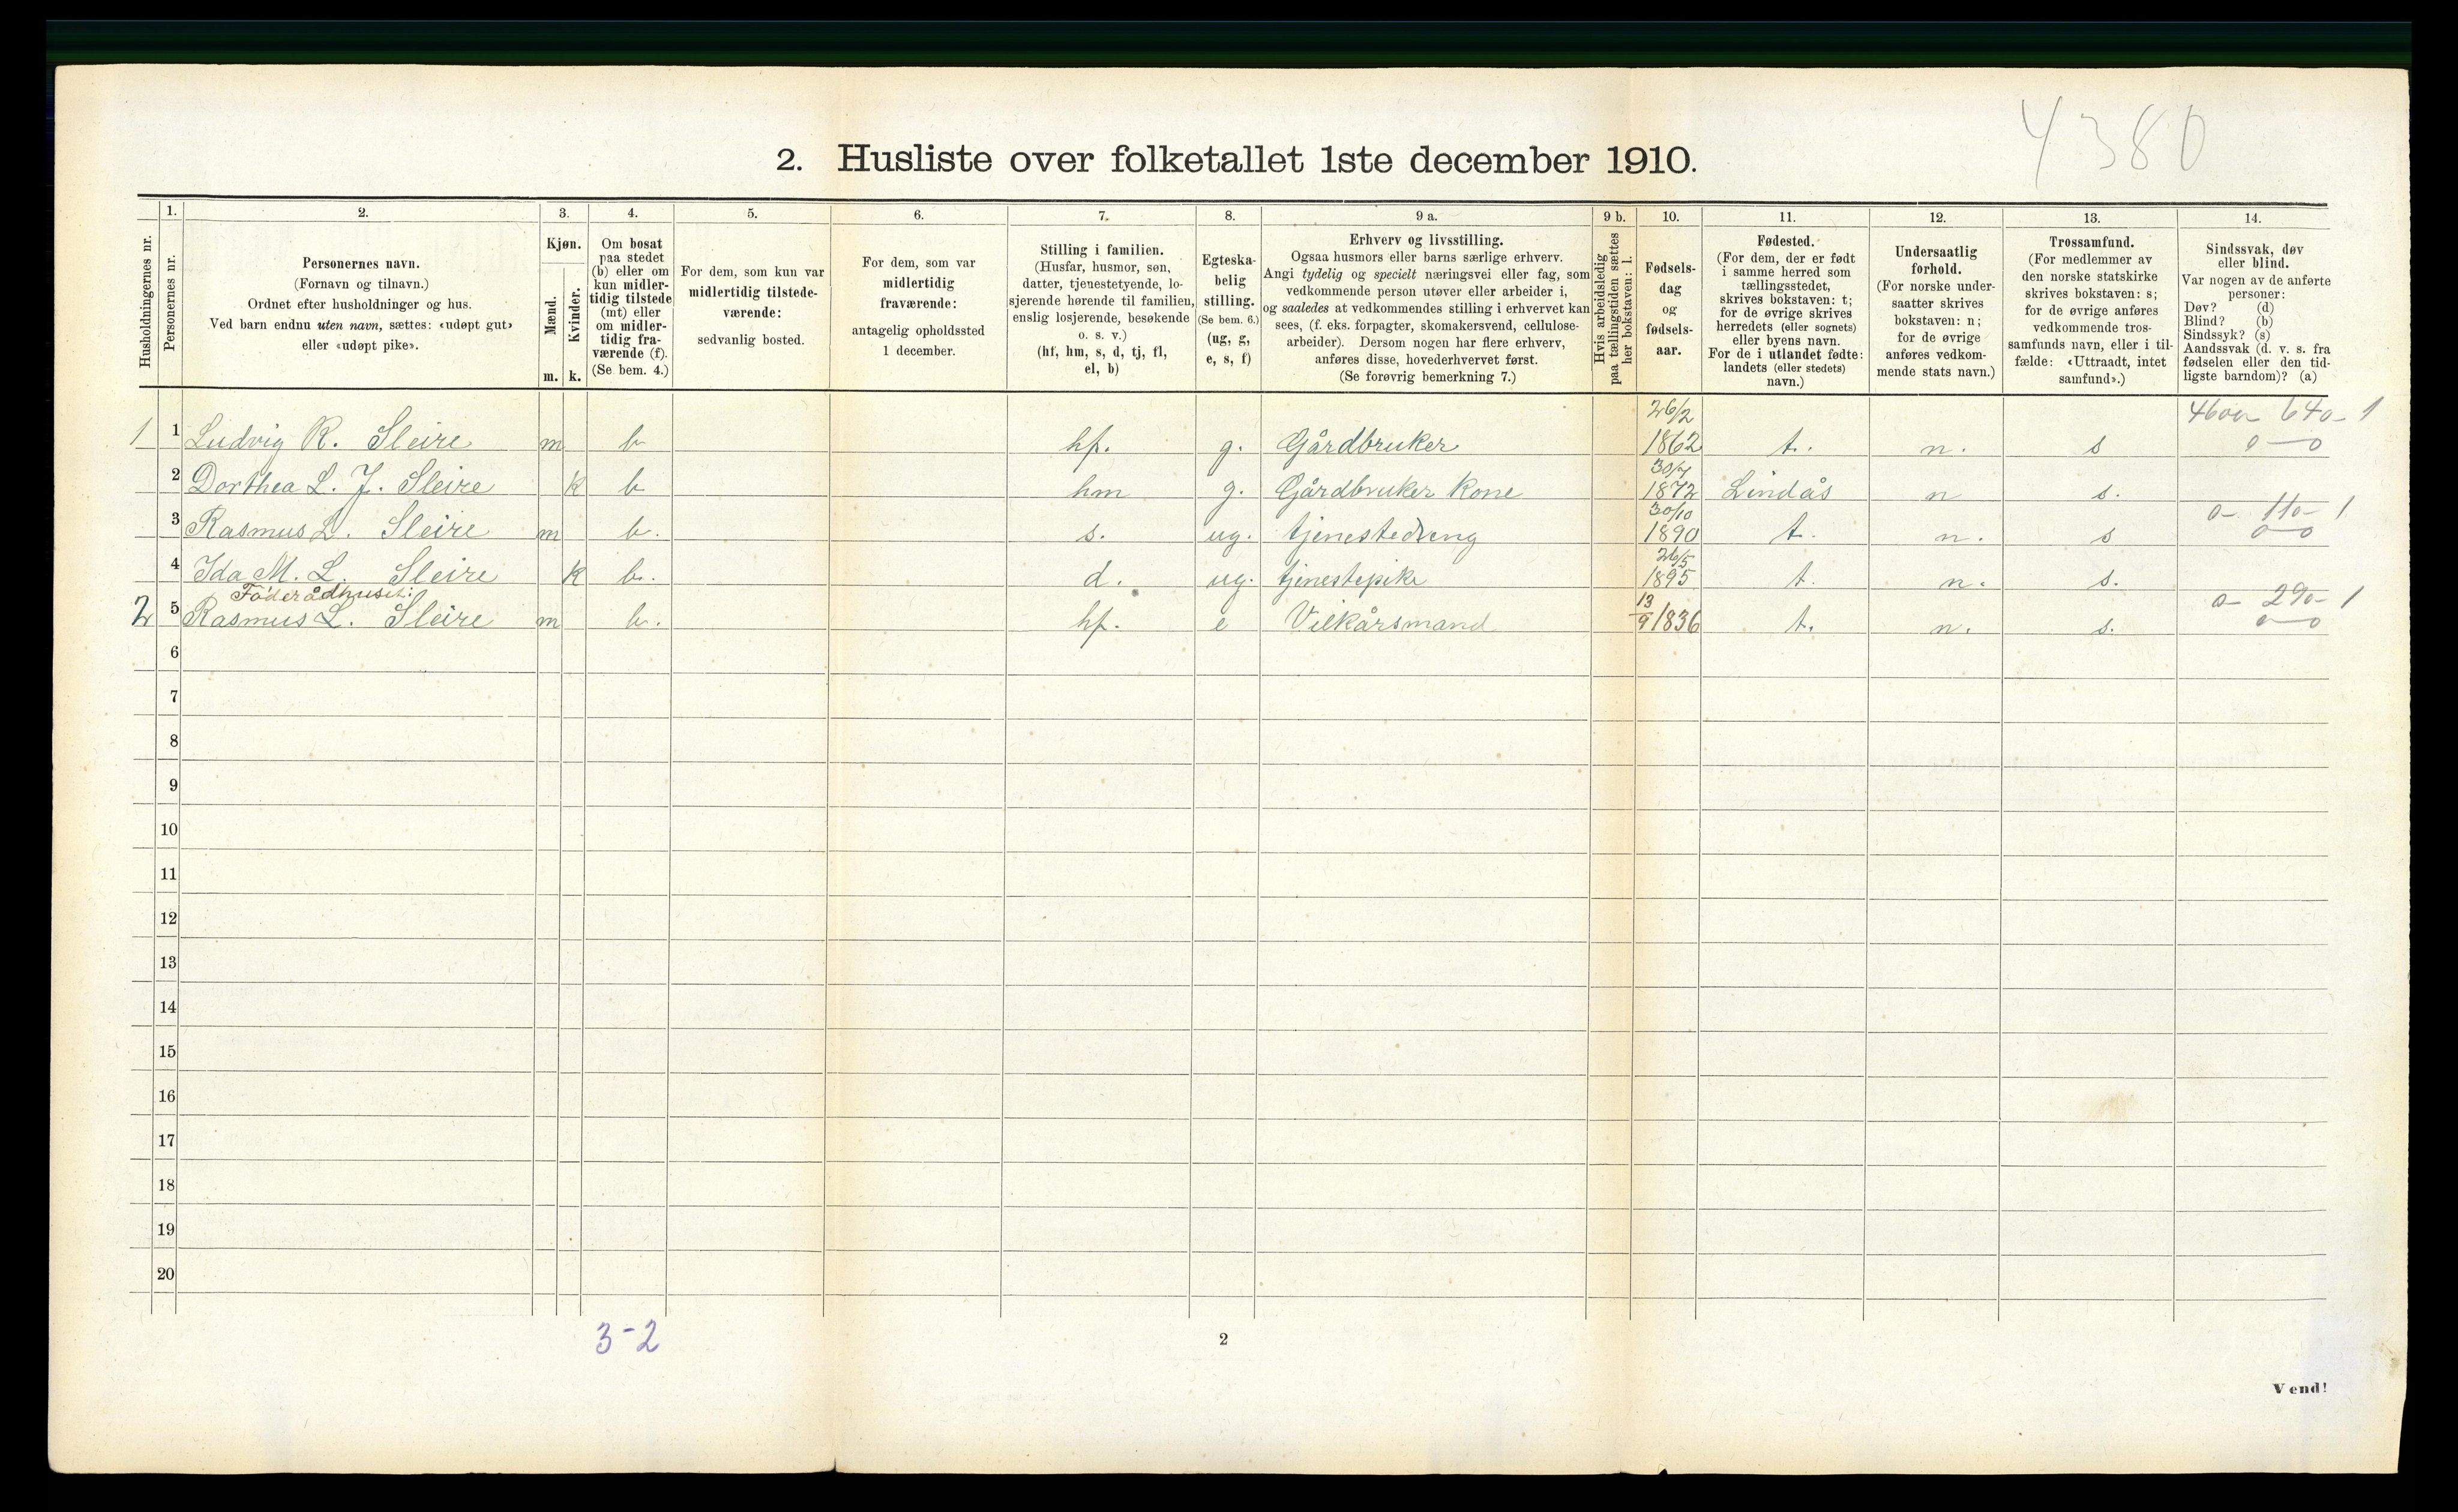 4380
2. Husliste over folketallet 1ste december 1910.
Husholdningernes nr.
1.
Personernes nr.
2.
Personernes navn.
(Fornavn og tilnavn.)
Ordnet efter husholdninger og hus.
Ved barn endnu uten navn, sættes: «udøpt gut»
eller «udøpt pike».
3.
Kjøn.
Mænd.
Kvinder.
m. k.
4.
Om bosat
paa stedet
(b) eller om
kun midler-
tidig tilstede
(mt) eller
om midler-
tidig fra-
værende (f).
(Se bem. 4.)
5.
For dem, som kun var
midlertidig tilstede-
værende:
sedvanlig bosted.
6.
For dem, som var
midlertidig
fraværende:
antagelig opholdssted
1 december.
7.
Stilling i familien.
(Husfar, husmor, søn,
datter, tjenestetyende, lo-
sjerende hørende til familien,
enslig losjerende, besøkende
o. s. v.)
(hf, hm, s, d, tj, fl,
el, b)
8.
Egteska-
belig
stilling.
(Se bem. 6.)
(ug, g,
e, s, f)
9 a.
Erhverv og livsstilling.
Ogsaa husmors eller barns særlige erhverv.
Angi tydelig og specielt næringsvei eller fag, som
vedkommende person utøver eller arbeider i,
og saaledes at vedkommendes stilling i erhvervet kan
sees, (f. eks. forpagter, skomakersvend, cellulose-
arbeider). Dersom nogen har flere erhverv,
anføres disse, hovederhvervet først.
(Se forøvrig bemerkning 7.)
9 b.
Hvis arbeidsledig
paa tællingstiden sættes
her bokstaven: l.
10.
Fødsels-
dag
og
fødsels-
aar.
11.
Fødested.
(For dem, der er født
i samme herred som
tællingsstedet,
skrives bokstaven: t;
for de øvrige skrives
herredets (eller sognets)
eller byens navn.
For de i utlandet fødte:
landets (eller stedets)
navn.)
12.
Undersaatlig
forhold.
(For norske under-
saatter skrives
bokstaven: n;
for de øvrige
anføres vedkom-
mende stats navn.)
13.
Trossamfund.
(For medlemmer av
den norske statskirke
skrives bokstaven: s;
for de øvrige anføres
vedkommende tros-
samfunds navn, eller i til-
fælde: «Uttraadt, intet
samfund».)
14.
Sindssvak, døv
eller blind.
Var nogen av de anførte
personer:
Døv? (d)
Blind? (b)
Sindssyk? (s)
Aandssvak (d. v. s. fra
fødselen eller den tid-
ligste barndom)? (a)
1 1 Ludvig R. Sleire m b hf. g. Gårdbruker 26/2 1862 t. n. s
2 Dorthea L. J. Sleire k b hm g. Gårdbruker Kone 1872 Lindås n s.
3 Rasmus L. Sleire m b. s. ug. tjenestedreng 30/10 1890 t. n. s
0- 110- 1
4 Ida M. L. Sleire k b. d. ug. tjenestepike 26/5 1895 t. n. s.
Föderådhuset:
2 5 Rasmus L. Sleire m b. hf. e Vilkårsmand 13/9 1836 t. n. s.
0- 290- 1
6
7
8
9
10
11
12
13
14
15
16
17
18
19
20
3-2
2
Vend!